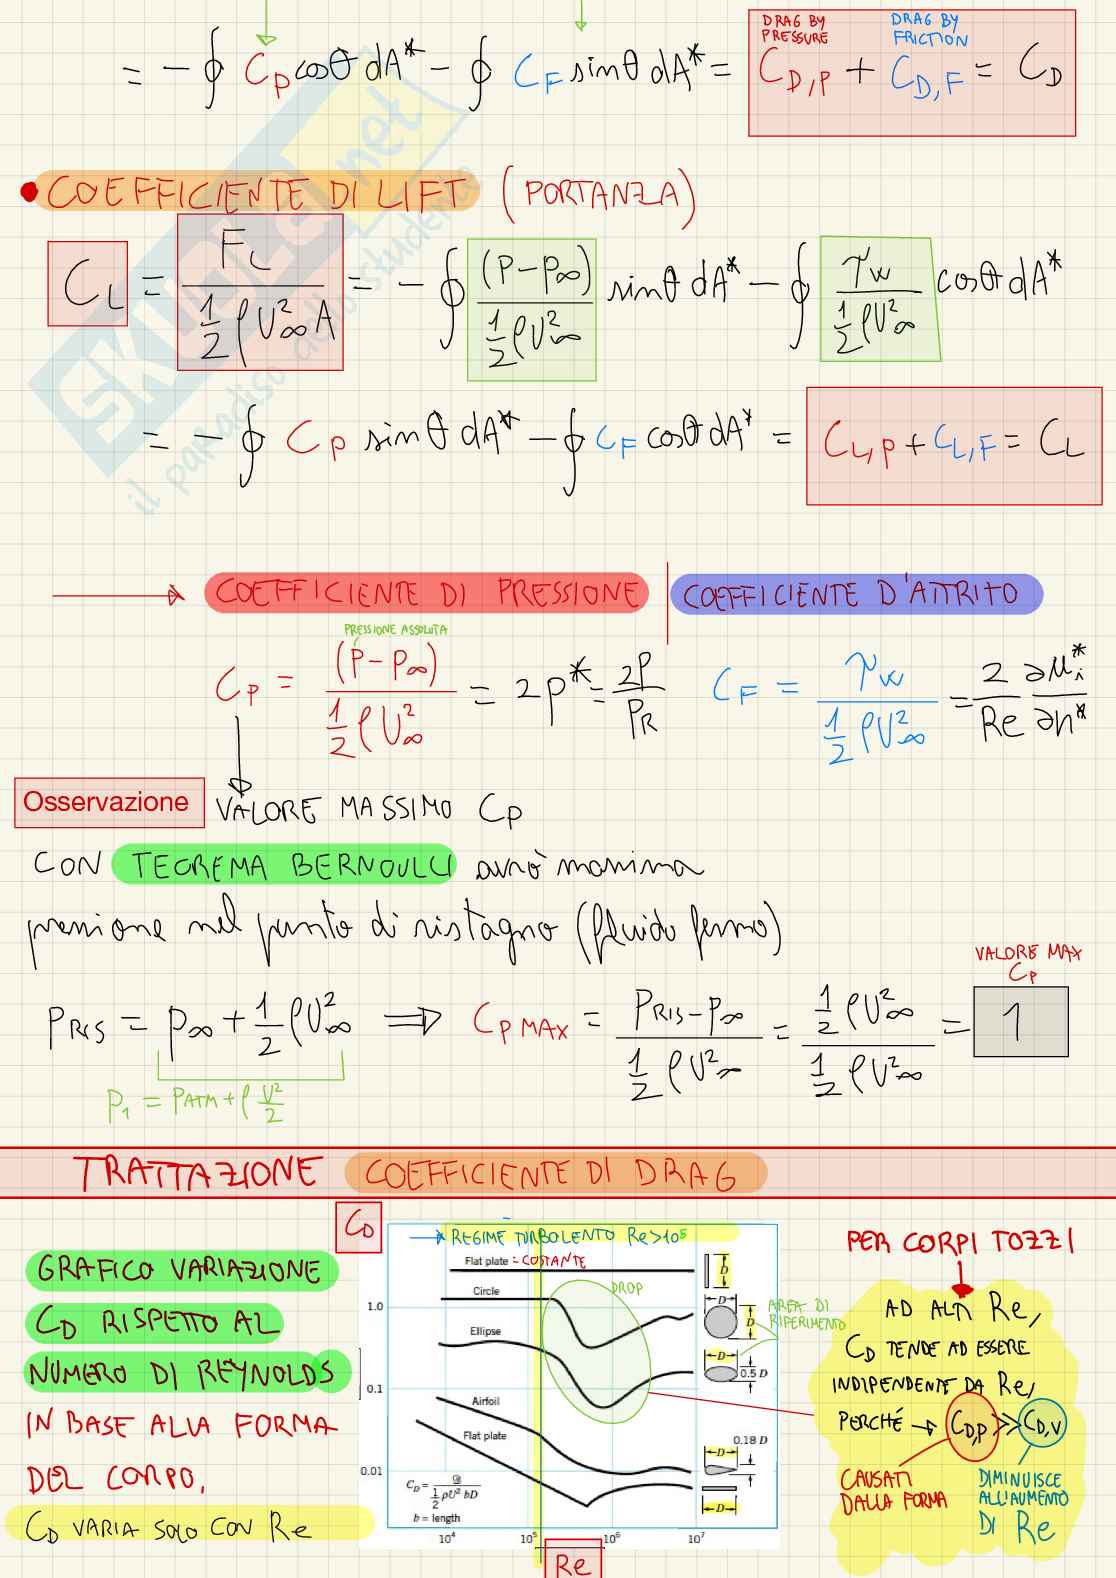 DRAG BY PRESSURE DRAG BY FRICTION
= - ∮ C_P cosθ dA* - ∮ C_F sinθ dA* = C_D,P + C_D,F = C_D
• COEFFICIENTE DI LIFT (PORTANZA)
C_L = F_L / (1/2 ρU²∞ A) = - ∮ (P-p∞) / (1/2 ρU²∞) sinθ dA* - ∮ τ_w / (1/2 ρU²∞) cosθ dA*
= - ∮ C_P sinθ dA* - ∮ C_F cosθ dA* = C_L,P + C_L,F = C_L
→ COEFFICIENTE DI PRESSIONE | COEFFICIENTE D'ATTRITO
PRESSIONE ASSOLUTA
C_P = (P-p∞) / (1/2 ρU²∞) = 2p* = 2P/P_R
C_F = τ_w / (1/2 ρU²∞) = 2/Re ∂u_i*/∂n*
Osservazione VALORE MASSIMO C_P
CON TEOREMA BERNOULLI avrò massima
pressione nel punto di ristagno (fluido fermo)
VALORE MAX C_P
P_RIS = p∞ + 1/2 ρU²∞ ⇒ C_P MAX = (P_RIS - p∞) / (1/2 ρU²∞) = (1/2 ρU²∞) / (1/2 ρU²∞) = 1
P_1 = P_ATM + ρ V²/2
TRATTAZIONE COEFFICIENTE DI DRAG
GRAFICO VARIAZIONE
C_D RISPETTO AL
NUMERO DI REYNOLDS
IN BASE ALLA FORMA
DEL CORPO,
C_D VARIA SOLO CON Re
C_D
→ REGIME TURBOLENTO Re>10⁵
Flat plate = COSTANTE
DROP
Circle
1.0
Ellipse
0.1
Airfoil
Flat plate
0.01
C_D = 𝒟 / (1/2 ρU² bD)
b = length
10⁴ 10⁵ 10⁶ 10⁷
Re
D
D
D
AREA DI RIFERIMENTO
D
0.5 D
0.18 D
D
D
PER CORPI TOZZI
AD ALTI Re,
C_D TENDE AD ESSERE
INDIPENDENTE DA Re,
PERCHÉ → C_D,P >> C_D,V
CAUSATI
DALLA FORMA
DIMINUISCE
ALL'AUMENTO
DI Re
SKUOLA.net
il paradiso dello studente